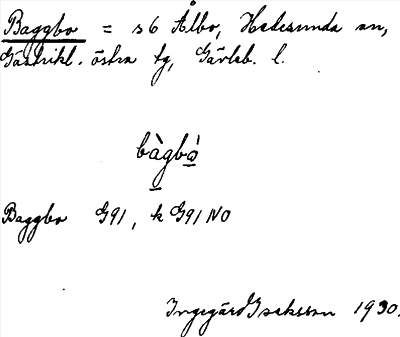 Baggbo = s 6 Ålbo, Hedesunda sn,
Gästrikl. östra tg, Gävleb. l.
bàgbò
Baggbo G91, k G91 NO
Ingegärd Isaksson 1930.